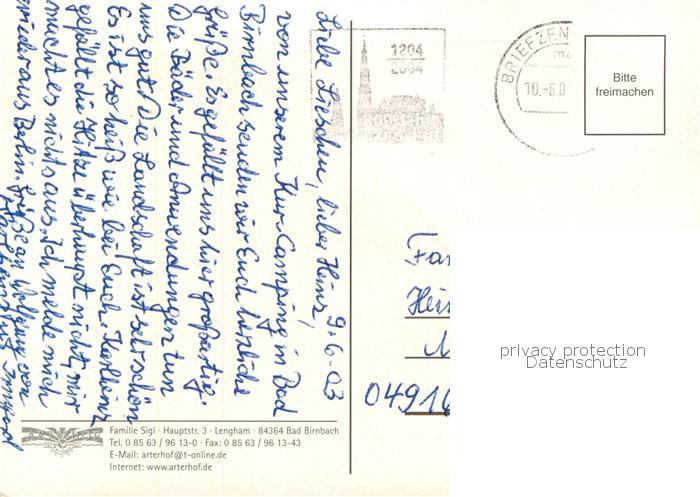 9.6.03
Liebe Lieschen, lieber Heinz,
von unserem Kur-Camping in Bad
Birnbach senden wir Euch herzliche
Grüße. Es gefällt uns hier großartig.
Die Bäder und Anwendungen tun
uns gut. Die Landschaft ist sehr schön.
Es ist so heiß wie bei Euch. Karlheinz
gefällt die Hitze überhaupt nicht, mir
macht es nichts aus. Ich melde mich
wieder aus Berlin. Grüße an Wolfgang von
Irmgard
1204
2004
BRIEFZEN
10.-6.0
Bitte
freimachen
Fam
Hei
0491
privacy protection
Datenschutz
Familie Sigl · Hauptstr. 3 · Lengham · 84364 Bad Birnbach
Tel. 0 85 63 / 96 13-0 · Fax: 0 85 63 / 96 13-43
E-Mail: arterhof@t-online.de
Internet: www.arterhof.de